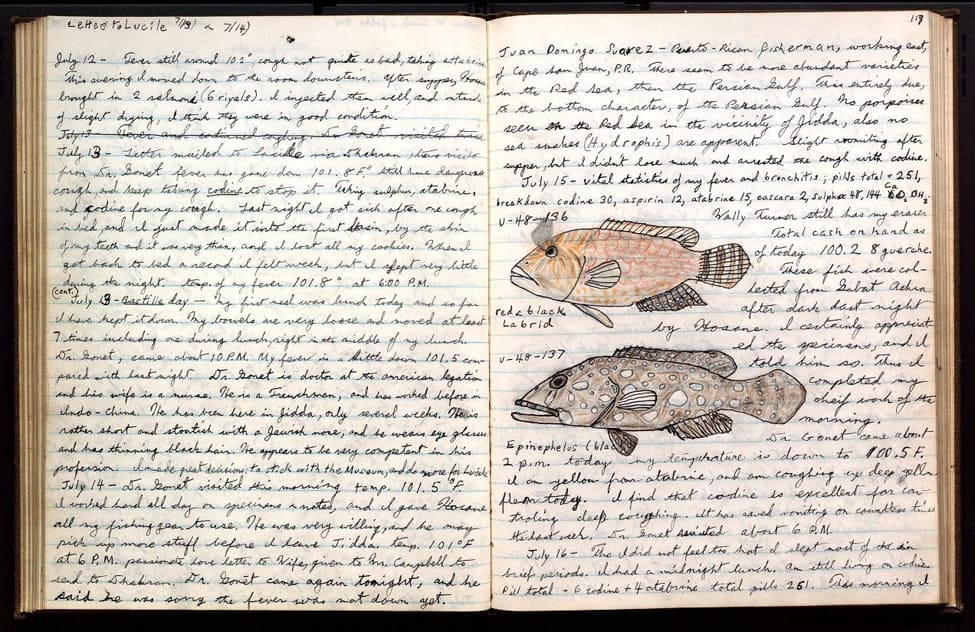 Letter to Lucile 7/13 a 7/14)
July 12 - Fever still around 101°, cough not quite as bad, taking atabrine
This evening I moved down to the room downstairs. After supper, Hosane
brought in 2 salmoneti (6 riyals). I injected them well, and instead
of slight drying, I think they were in good condition.
July 13 - Fever and continued coughing. Dr. Gonet visited twice
July 13 - Letter mailed to Lucile via Dhahran, three visits
from Dr. Gonet fever has gone down 101.8 F° still have dangerous
cough, and keep taking codine to stop it. Taking sulpha, atabrine,
and codine for my cough. Last night I got sick after one cough
in bed, and I just made it into the first basin, by the skin
of my teeth and it was very thin, and I lost all my cookies. When I
got back to bed a second I felt weak, but I slept very little
during the night. temp. of my fever 101.8° at 6:00 P.M.
(cont.) July 13 - Bastille day - My first meal was lunch today and so far
I have kept it down. My bowels are very loose and moved at least
7 times including one during lunch, right in the middle of my lunch.
Dr. Gonet, came about 10 P.M. My fever is a little down 101.5 com-
pared with last night. Dr. Gonet is doctor at the american legation
and his wife is a nurse. He is a Frenchman, and has worked before in
Indo-china. He has been here in Jidda, only several weeks. He is
rather short and stoutish with a Jewish nose, and he wears eye glasses
and has thinning black hair. He appears to be very competent in his
profession I made great decision; to stick with the Museum, and do more for Lucile
July 14 - Dr. Gonet visited this morning temp. 101.5 °F
I worked hard all day on specimens & notes, and I gave Hosane
all my fishing gear to use. He was very willing, and he may
pick up more stuff before I leave Jidda. temp. 101°F
at 6 P.M. passionate love letter to Wife, given to Mr. Campbell to
send to Dhahran. Dr. Gonet came again tonight, and he
said he was sorry the fever was not down yet.
119
Juan Domingo Suarez - Puerto-Rican fisherman, working east,
of Cape San Juan, P.R. There seem to be more abundant varieties
in the Red Sea, then the Persian Gulf. This entirely due,
to the bottom character, of the Persian Gulf. No porpoises
seen in the Red Sea in the vicinity of Jidda, also no
sea snakes (Hydrophis) are apparent. Slight vomiting after
supper, but I didn't lose much and arrested the cough with codine.
July 15 - vital statistics of my fever and bronchitis; pills total = 251,
breakdown codine 30, aspirin 12, atabrine 15, cascara 2, sulpha 48, 144
U-48-136
Wally Turner still has my eraser
Total cash on hand as
of today 100.28 guerche.
These fish were col-
lected from Gubat Ashra
after dark last night
red & black
Labrid
by Hosane. I certainly appreciat-
ed the specimens, and I
U-48-137
told him so. Thus I
completed my
cheif work of the
morning.
Dr. Gonet came about
Epinephelus (blac
2 p.m. today my temperature is down to 100.5 F.
I am yellow from atabrine, and am coughing up deep yellow
flem today. I find that codine is excellent for con-
troling deep coughing. It has saved vomiting on countless times
the last week, Dr. Gonet revisited about 6 P.M.
July 16 - Tho I did not feel too hot I slept most of the in
brief periods. I had a midnight lunch. Am still living on codine.
Pill total + 6 codine + 4 atabrine total pills 261. This morning I